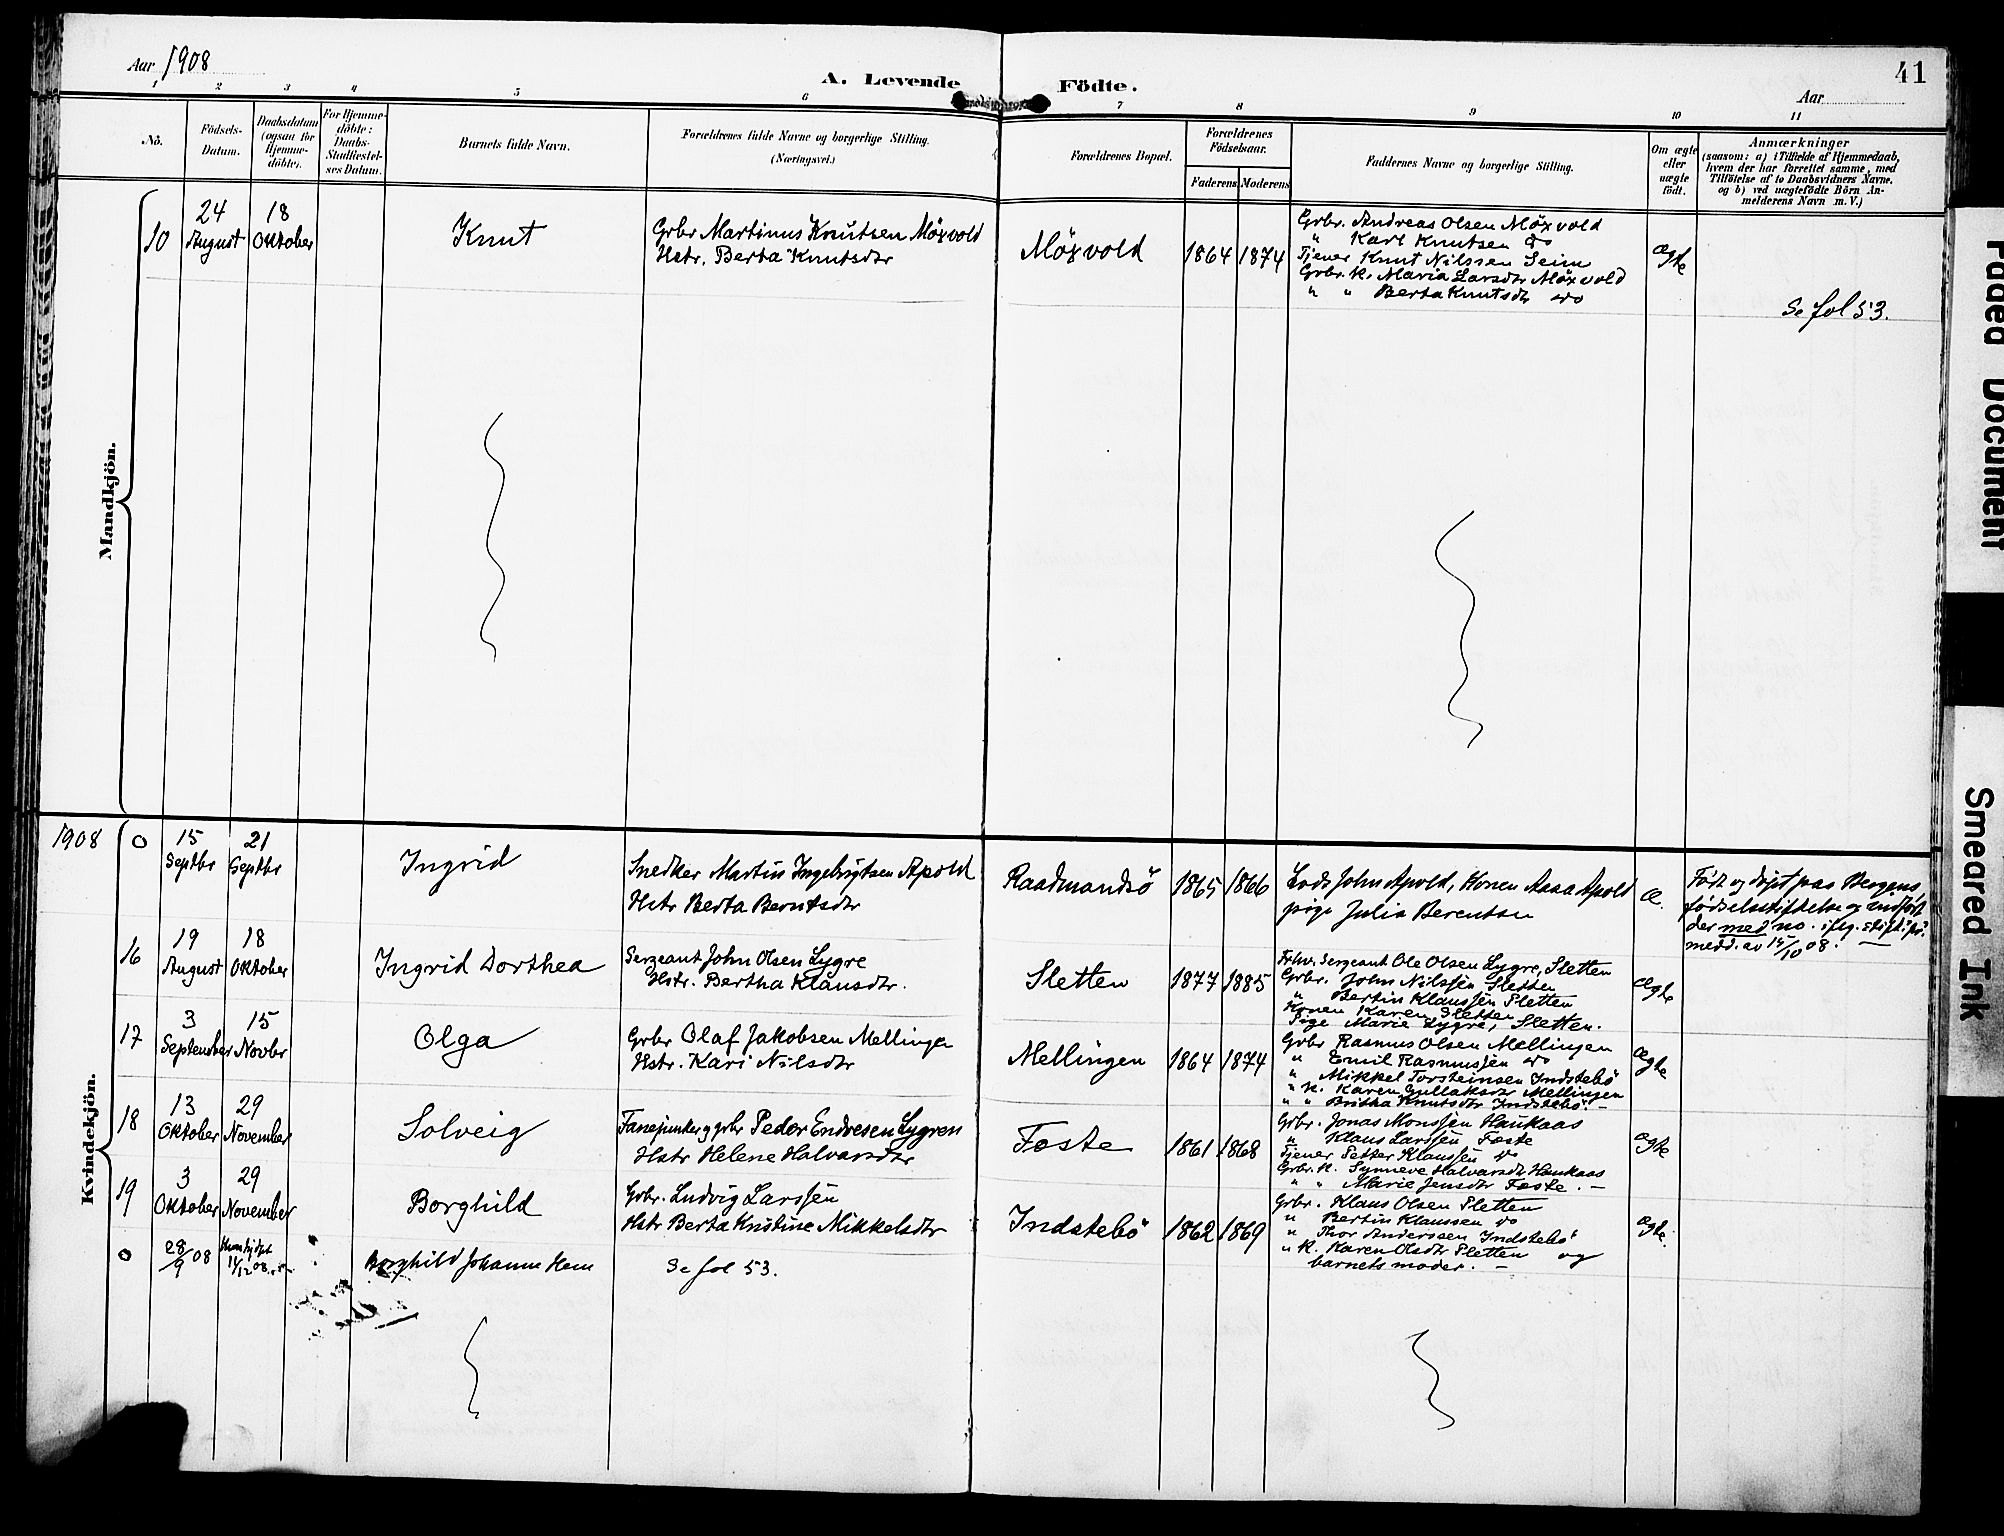 Aar 1908
A. Levende Födte.
41
Aar
1 2 3 4 5 6 7 8 9 10 11
No.
Födsels-
Datum.
Daabsdatum
(ogsaa for
Hjemme-
döbte).
For Hjemme-
döbte:
Daabs-
Stadfæstel-
ses Datum.
Barnets fulde Navn.
Forældrenes fulde Navne og borgerlige Stilling.
(Næringsvei.)
Forældrenes Bopæl.
Forældrenes
Födselsaar.
Faderens Moderens
Faddernes Navne og borgerlige Stilling.
Om ægte
eller
uægte
födt.
Anmærkninger
(saasom: a) i Tilfælde af Hjemmedaab,
hvem der har forrettet samme, med
Tilföielse af to Daabsvidners Navne.
og b) ved uægtefödte Börn An-
melderens Navn m. V.)
Mandkjön.
10
24
August
18
Oktober
Knut
Grbr Martinus Knutsen Möxvold
Hstr. Berta Knutsdtr
Möxvold
1864
1874
Grbr. Andreas Olsen Möxvold
" Karl Knutsen do
Tjener Knut Nilssen Seim
Grbr. K. Maria Larsdtr Möxvold
" " Berta Knutsdtr do
Ægte
Se fol 53.
Kvindekjön.
1908
0
15
Septbr
21
Septbr
Ingrid
Snedker Martin Ingebrigtsen Apold
Hstr Berta Berntsdtr
Raadmandsö
1865
1866
Lods John Apold, Konen Aasa Apold
pige Julia Berentsen
Æ.
Födt og döpt paa Bergens
födselsstiftelse og indfört
der med no. iflg. stiftspr.
medd. av 15/10 08. —
16
19
August
18
Oktober
Ingrid Dorthea
Sergeant John Olsen Lygre
Hstr. Bertha Klausdtr.
Sletten
1877
1885
Frhv. Sergeant Ole Olsen Lygre, Sletten
Grbr. John Nilssen Sletten
" Bertin Klaussen Sletten
Konen Karen Sletten
Pige Marie Lygre, Sletten.
Ægte
17
3
September
15
Novbr
Olga
Grbr Olaf Jakobsen Mellingen
Hstr. Kari Nilsdtr
Mellingen
1864
1874
Grbr Rasmus Olsen Mellingen
" Emil Rasmussen do
" Mikkel Torsteinsen Indstebö
" K. Karen Gullaksdtr Mellingen
" " Britha Knutsdtr Indstebö. —
Ægte
18
13
Oktober
29
November
Solveig
Fanejunker og grbr Peder Endresen Lygren
Hstr Helene Halvarsdtr
Foste
1861
1868
Grbr. Jonas Monssen Haukaas
" Klaus Larssen Foste
Tjener Setzer Klaussen do
Grbr. K. Synneve Halvarsdtr Haukaas
" " Marie Jensdtr Foste. —
Ægte
19
3
Oktober
29
November
Borghild
Grbr. Ludvig Larssen
Hstr Berta Kristine Mikkelsdtr
Indstebö
1862
1869
Grbr. Klaus Olsen Sletten
" Bertin Klaussen do
" Thor Anderssen Indstebö
" K. Karen Olsdtr Sletten og
barnets moder. —
Ægte.
0
28/9 08
14/12 08
Borghild Johanne Hem
Se fol 53.
Faded Document
Smeared Ink